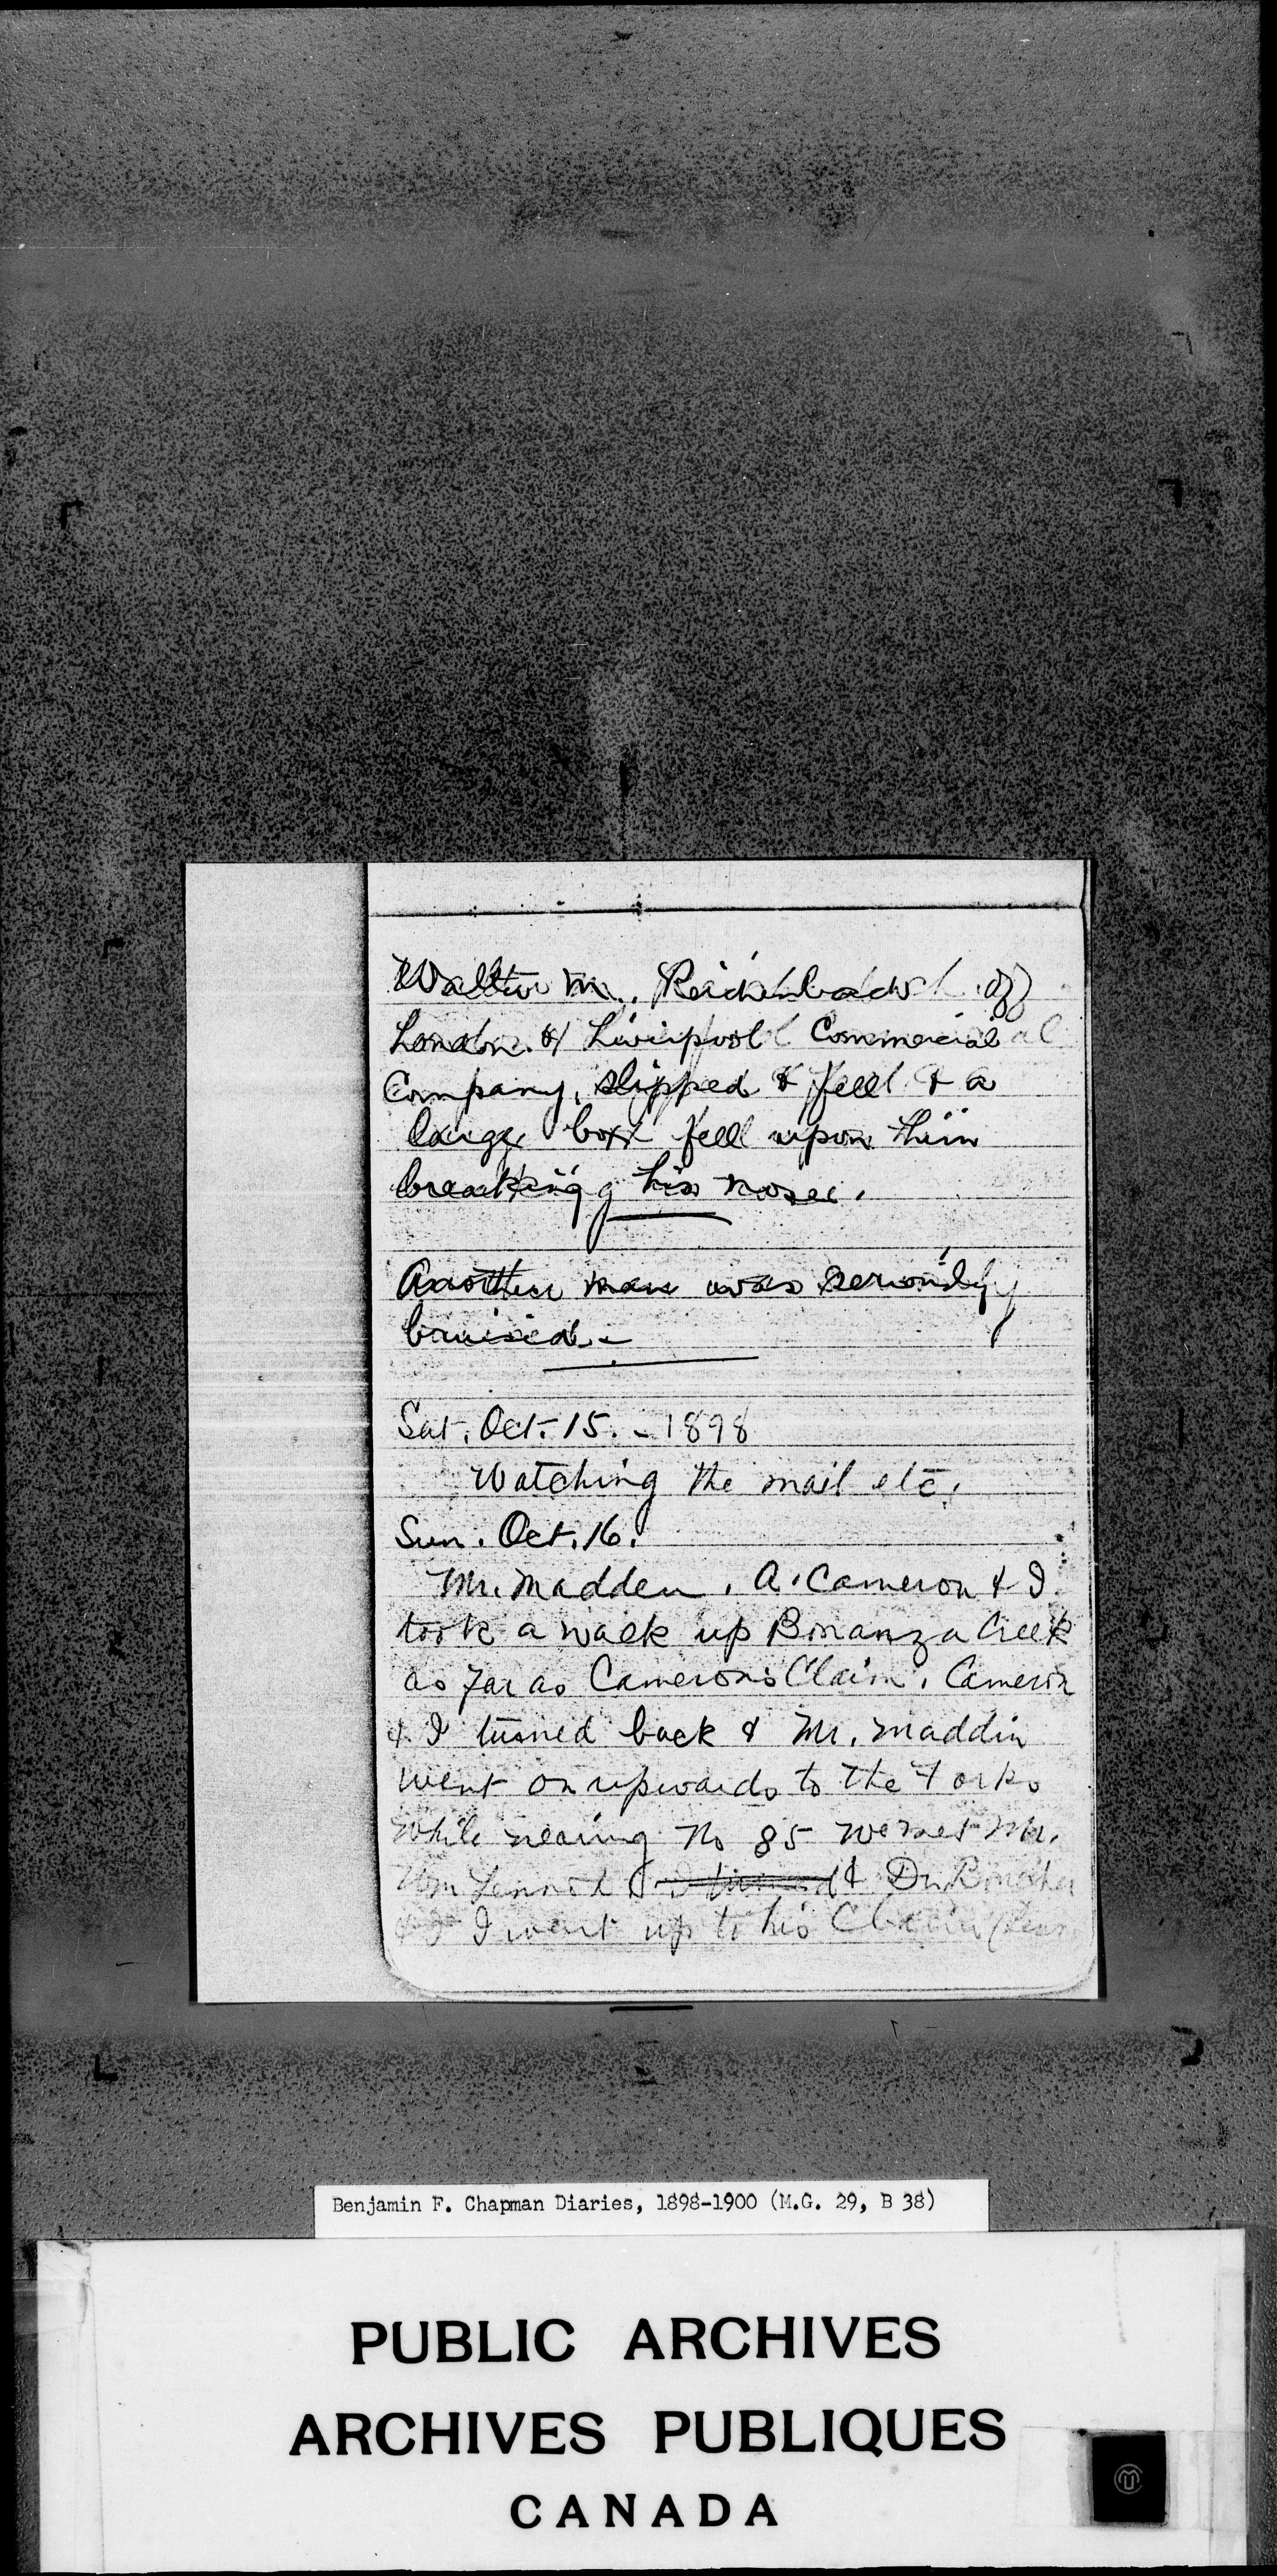 Walter M. Reichenbach of
London & Liverpool Commercial
Company, slipped & fell & a
large box fell upon him
breaking his nose.
Another man was seriously
bruised.
Sat. Oct. 15. - 1898
Watching the mail etc.
Sun. Oct. 16.
Mr. Madden, A. Cameron & I
took a walk up Bonanza Creek
as far as Camerons Claim. Cameron
& I turned back & Mr. Maddin
went on upwards to the Forks
While nearing No 85 we met Mr.
Wm & Dr.
I went up to his Claim
Benjamin F. Chapman Diaries, 1898-1900 (M.G. 29, B 38)
PUBLIC ARCHIVES
ARCHIVES PUBLIQUES
CANADA